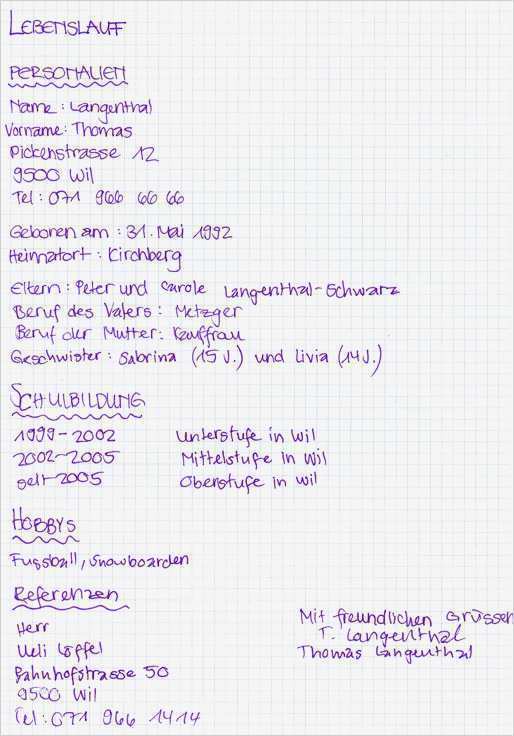 LEBENSLAUF
PERSONALIEN
Name: Langenthal
Vorname: Thomas
Pickenstrasse 12
9500 Wil
Tel: 071 966 66 66
Geboren am: 31. Mai 1992
Heimatort: Kirchberg
Eltern: Peter und Carole Langenthal-Schwarz
Beruf des Vaters: Metzger
Beruf der Mutter: Kauffrau
Geschwister: Sabrina (15 J.) und Livia (14 J.)
SCHULBILDUNG
1999-2002 Unterstufe in Wil
2002-2005 Mittelstufe in Wil
seit 2005 Oberstufe in Wil
HOBBYS
Fussball, Snowboarden
Referenzen
Herr
Ueli Löffel
Bahnhofstrasse 50
9500 Wil
Tel: 071 966 14 14
Mit freundlichen Grüssen
T. Langenthal
Thomas Langenthal